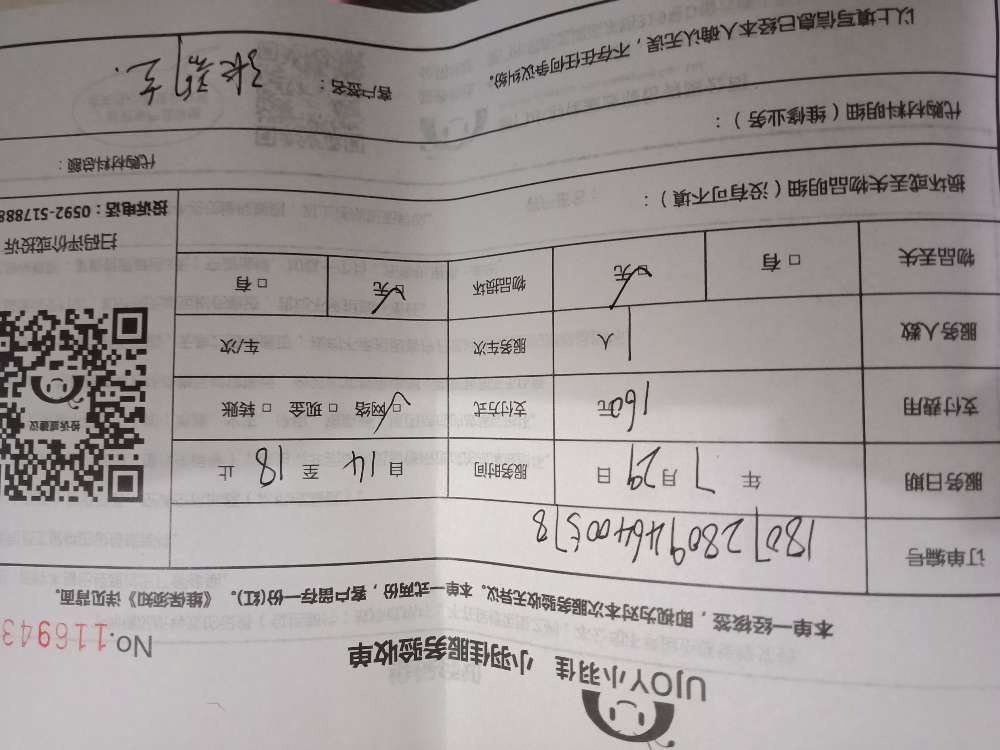 UJOY小羽佳 小羽佳服务验收单
No.116943
本单一经核签，即视为对本次服务验收无异议。本单一式两份，客户留存一份(红)。《维保须知》详见背面。
订单编号 1807280946400578
服务日期 年 7 月 29 日 服务时间 自 14 至 18 止
支付费用 160元 支付方式 ☑网络 □现金 □转账
服务人数 1 人 服务车次 车/次
物品丢失 □有 ☑无 物品损坏 ☑无 □有
投诉或建议
扫码评价或投诉
投诉电话：0592-517888
损坏或丢失物品明细（没有可不填）：
代购材料明细（维修业务）：
代购材料总额：
以上填写信息已经本人确认无误，不存在任何争议纠纷。
客户签名：